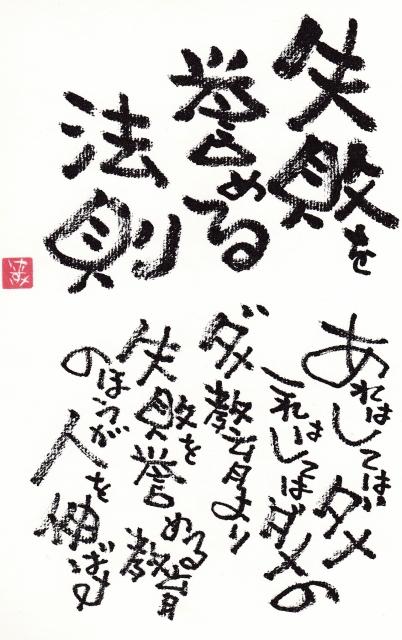 失敗を
誉める
法則
あれはしてはダメ
これはしてはダメの
ダメ教育より
失敗を誉める教育
のほうが
人を伸ばす